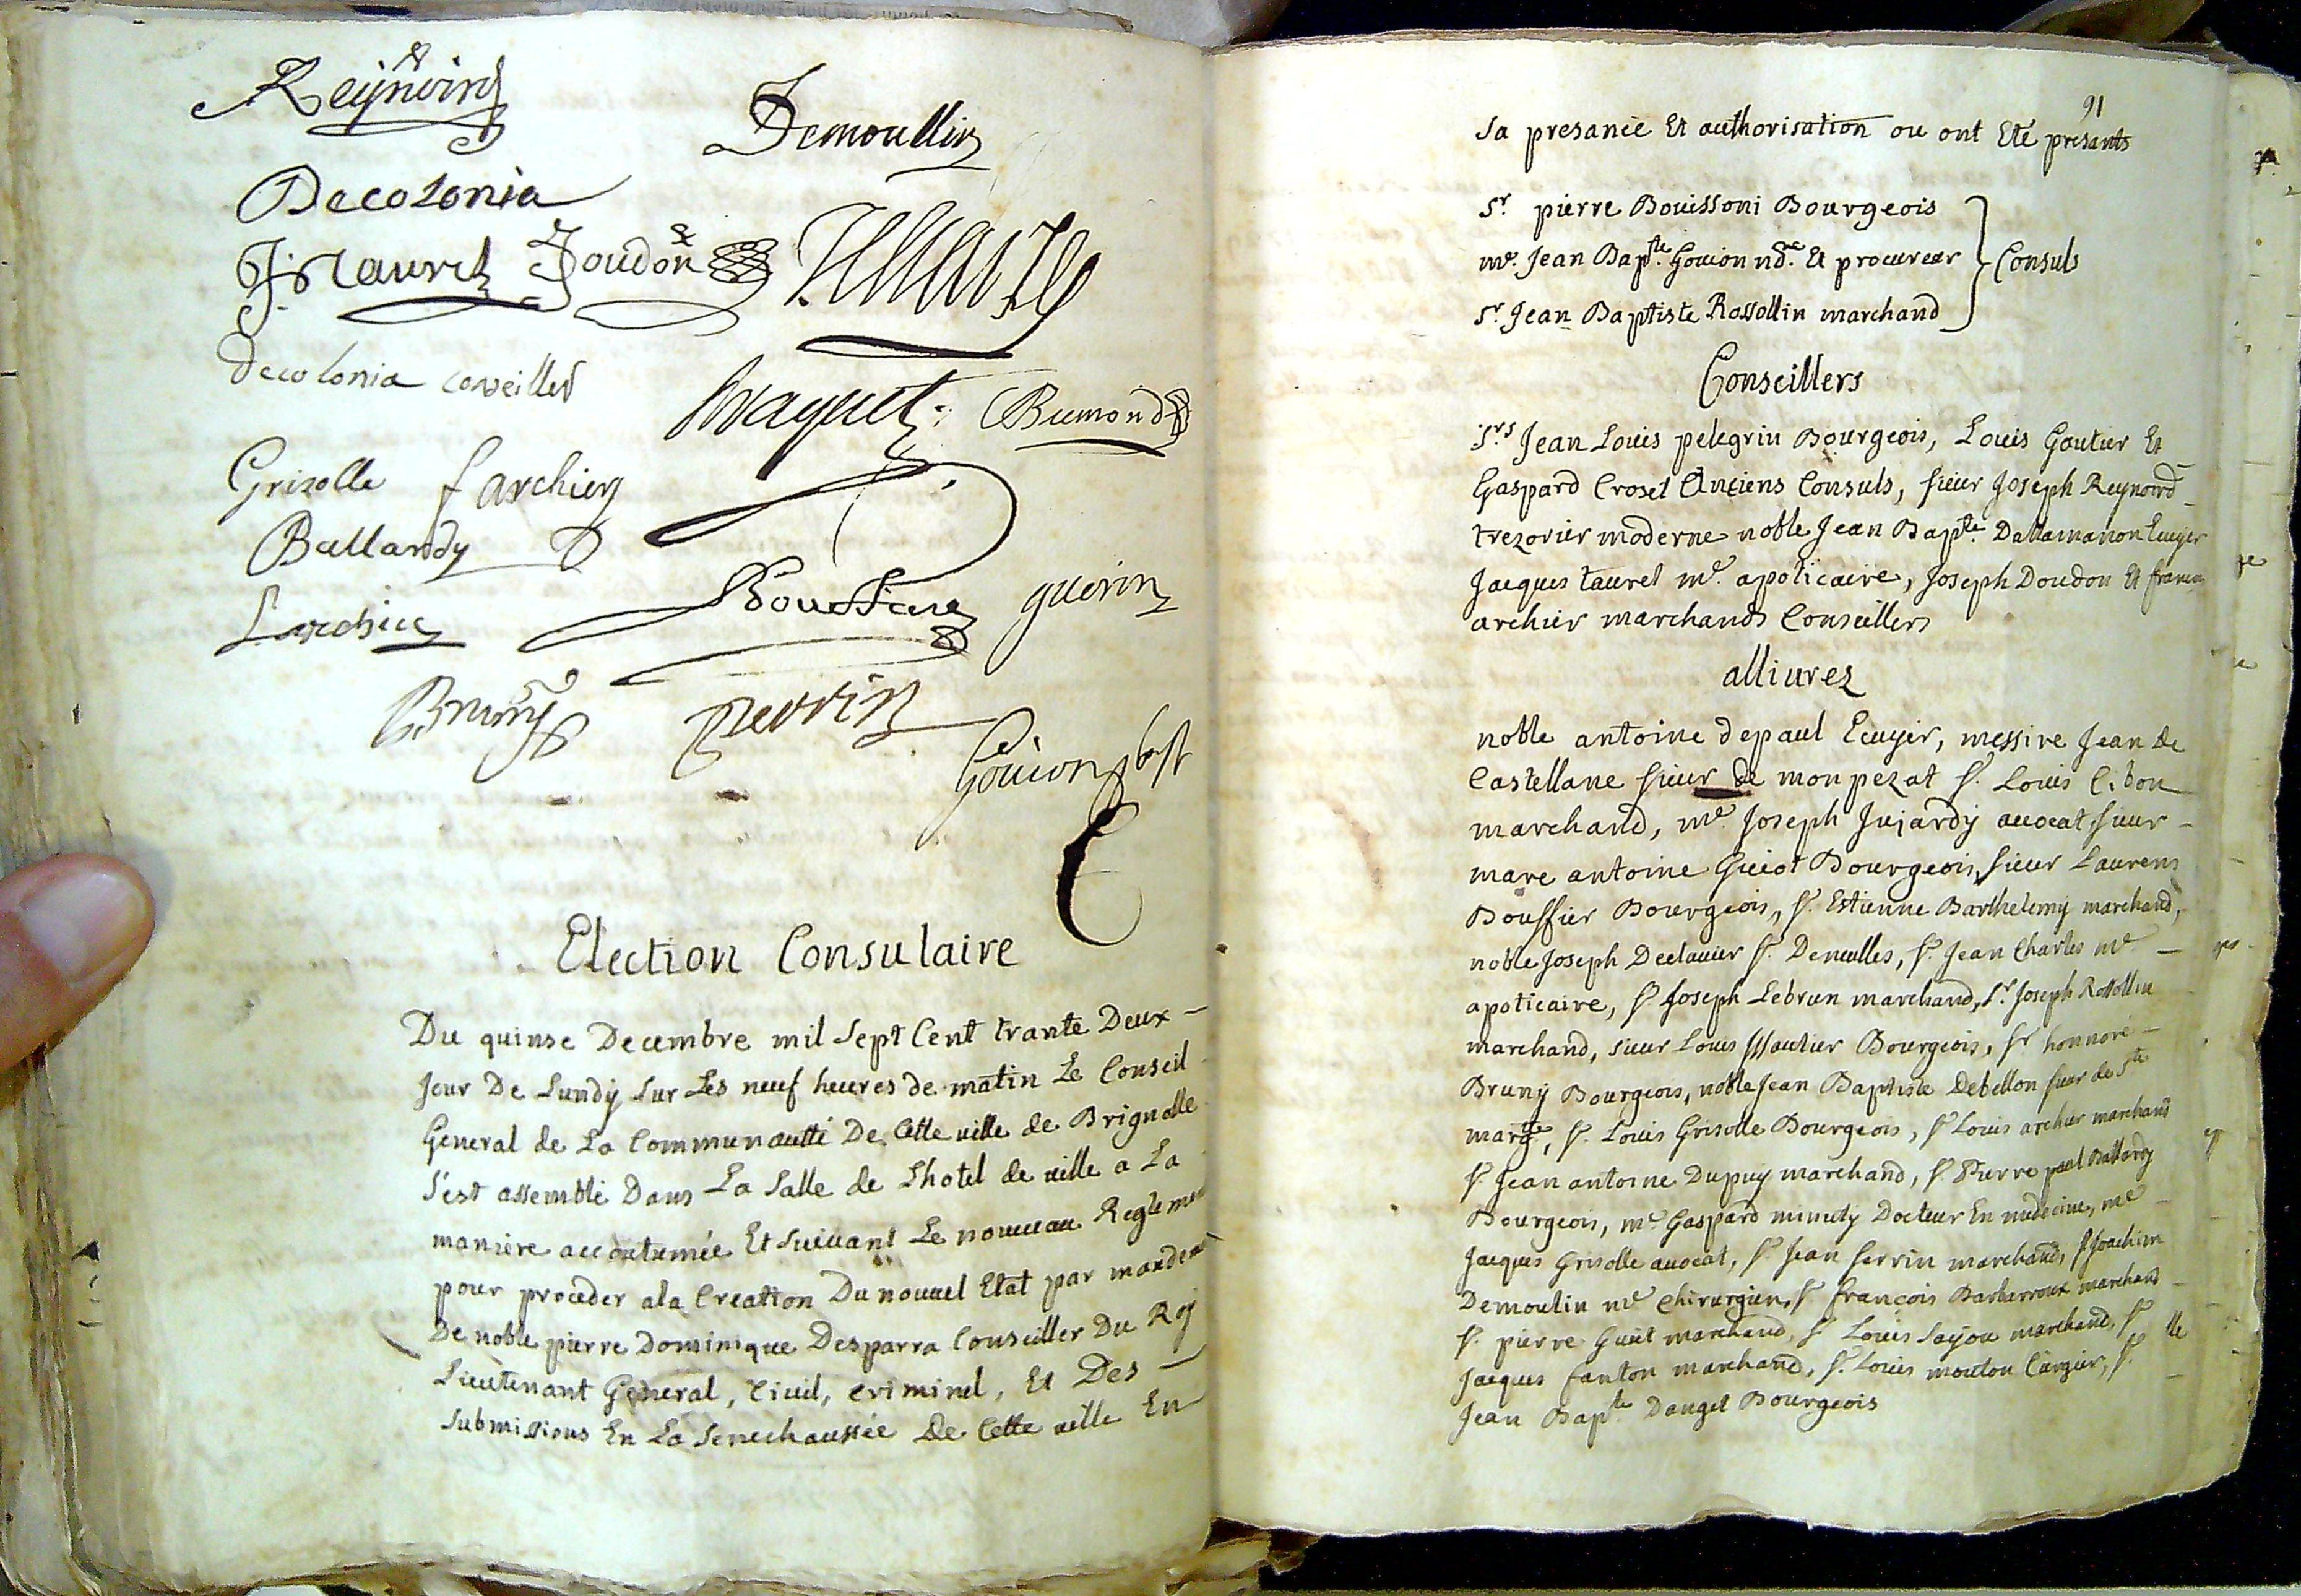 Reynoird
Demoullin
Decolonia
J. Taurel Doudon
Decolonia conseiller
Braquet Bumond
Grisolle f archier
Ballardy
Larchier
Bouffier guerin
Bruny perrin
Gouion
Election Consulaire
Du quinse Decembre mil sept Cent trante Deux
Jour De Lundy sur Les neuf heures de matin Le Conseil
General de La Communautté De Cette ville de Brignolle
s'est assemblé Dans La Salle de Lhotel de ville a La
maniere accoutumée Et suivant Le nouveau Reglement
pour proceder ala Creation Du nouvel Etat par mandement
De noble pierre Dominique Desparra Conseiller Du Roy
Lieutenant General, Civil, criminel, Et Des
submissions En La Senechaussée de Cette ville En
91
sa presance Et authorisation ou ont Eté presants
Sr. pierre Bouissoni Bourgeois
me. Jean Bapte. Gouion nd.re Et procureur
Consuls
Sr. Jean Baptiste Rossollin marchand
Conseillers
Srs Jean Louis pelegrin Bourgeois, Louis Gautier Et
Gaspard Croset Anciens Consuls, sieur Joseph Reynoird
trezorier moderne noble Jean Bapte. Dallamanon Ecuyer
Jacques taurel me. apoticaire, Joseph Doudon Et francois
archier marchands Conseillers
allivrez
noble antoine depaul Ecuyer, messire Jean de
Castellane sieur de monpezat sr. Louis Cibon
marchand, me. Joseph Jujardy avocat, sieur
marc antoine Guiot Bourgeois, sieur Laurens
Bouffier Bourgeois, sr. Estienne Barthelemy marchand,
noble Joseph Declavier sr. Deneulles, sr. Jean Charles me
apoticaire, sr. Joseph Lebrun marchand, sr. Joseph Rossollin
marchand, sieur Louis Maulier Bourgeois, sr honnoré
Bruny Bourgeois, noble Jean Baptiste Debellon sieur de Ste
margte, sr. Louis Grisolle Bourgeois, sr Louis archier marchand
sr. Jean antoine Dupuy marchand, sr. Pierre paul Ballardy
Bourgeois, me Gaspard minuty Docteur En medecine, me
Jacques Grisolle avocat, sr. Jean perrin marchand, sr Joachim
Demoulin me chirurgien, sr francois Barbarroux marchand
sr. pierre Guiet marchand, sr Louis Sajou marchand, sr
Jacques fanton marchand, sr. Louis mouton Cirgier, sr.
Jean Bapte Dauget Bourgeois